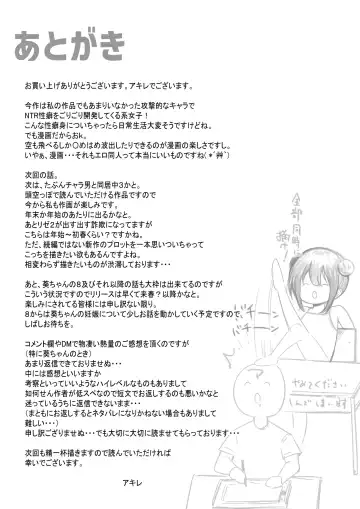 あとがき
お買い上げありがとうございます、アキレでございます。
今作は私の作品でもあまりいなかった攻撃的なキャラで
NTR性癖をごりごり開発してくる系女子！
こんな性癖身についちゃったら日常生活大変そうですけどね。
でも漫画だからおｋ。
空も飛べるしか〇めはめ波出したりできるのが漫画の楽しさですし。
いやぁ、漫画・・・それもエロ同人って本当にいいものですね(*´艸`)
次回の話。
次は、たぶんチャラ男と同居中３かとと。
頭空っぽで読んでいただける作品ですので
今から私も作画が楽しみです。
年末か年始のあたりに出るかなと。
あとリゼ２が出す出す詐欺になってますが
こちらは年始～初春くらい？ですかね。
ただ、続編ではない新作のプロットを一本思いついちゃって
こっちを描きたい欲もあるんですよね。
相変わらず描きたいものが渋滞しております・・・
あと、葵ちゃんの８及びそれ以降の話も大枠は出来てるのですが
こういう状況ですのでリリースは早くて来春？以降かなと。
楽しみにされてる皆様には申し訳ない限り。
８からは葵ちゃんの妊娠について少しお話を動かしていく予定ですので、
しばしお待ちを。
コメント欄やDMで物凄い熱量のご感想を頂くのですが
（特に葵ちゃんのとき）
あまり返信できておりませぬ・・・
中には感想といいますか
考察といっていいようなハイレベルなものもありまして
如何せん作者が低スペなので短文でお返しするのも悪いかなと
迷っているうちに返信できないまま・・・
（まともにお返しするとネタバレになりかねない場合もありまして
難しい・・・）
申し訳ござりませぬ・・・でも大切に大切に読ませてもらっております・・・
次回も精一杯描きますので読んでいただければ
幸いでございます。
アキレ
全部同時に
描け
バチーン
バチーン